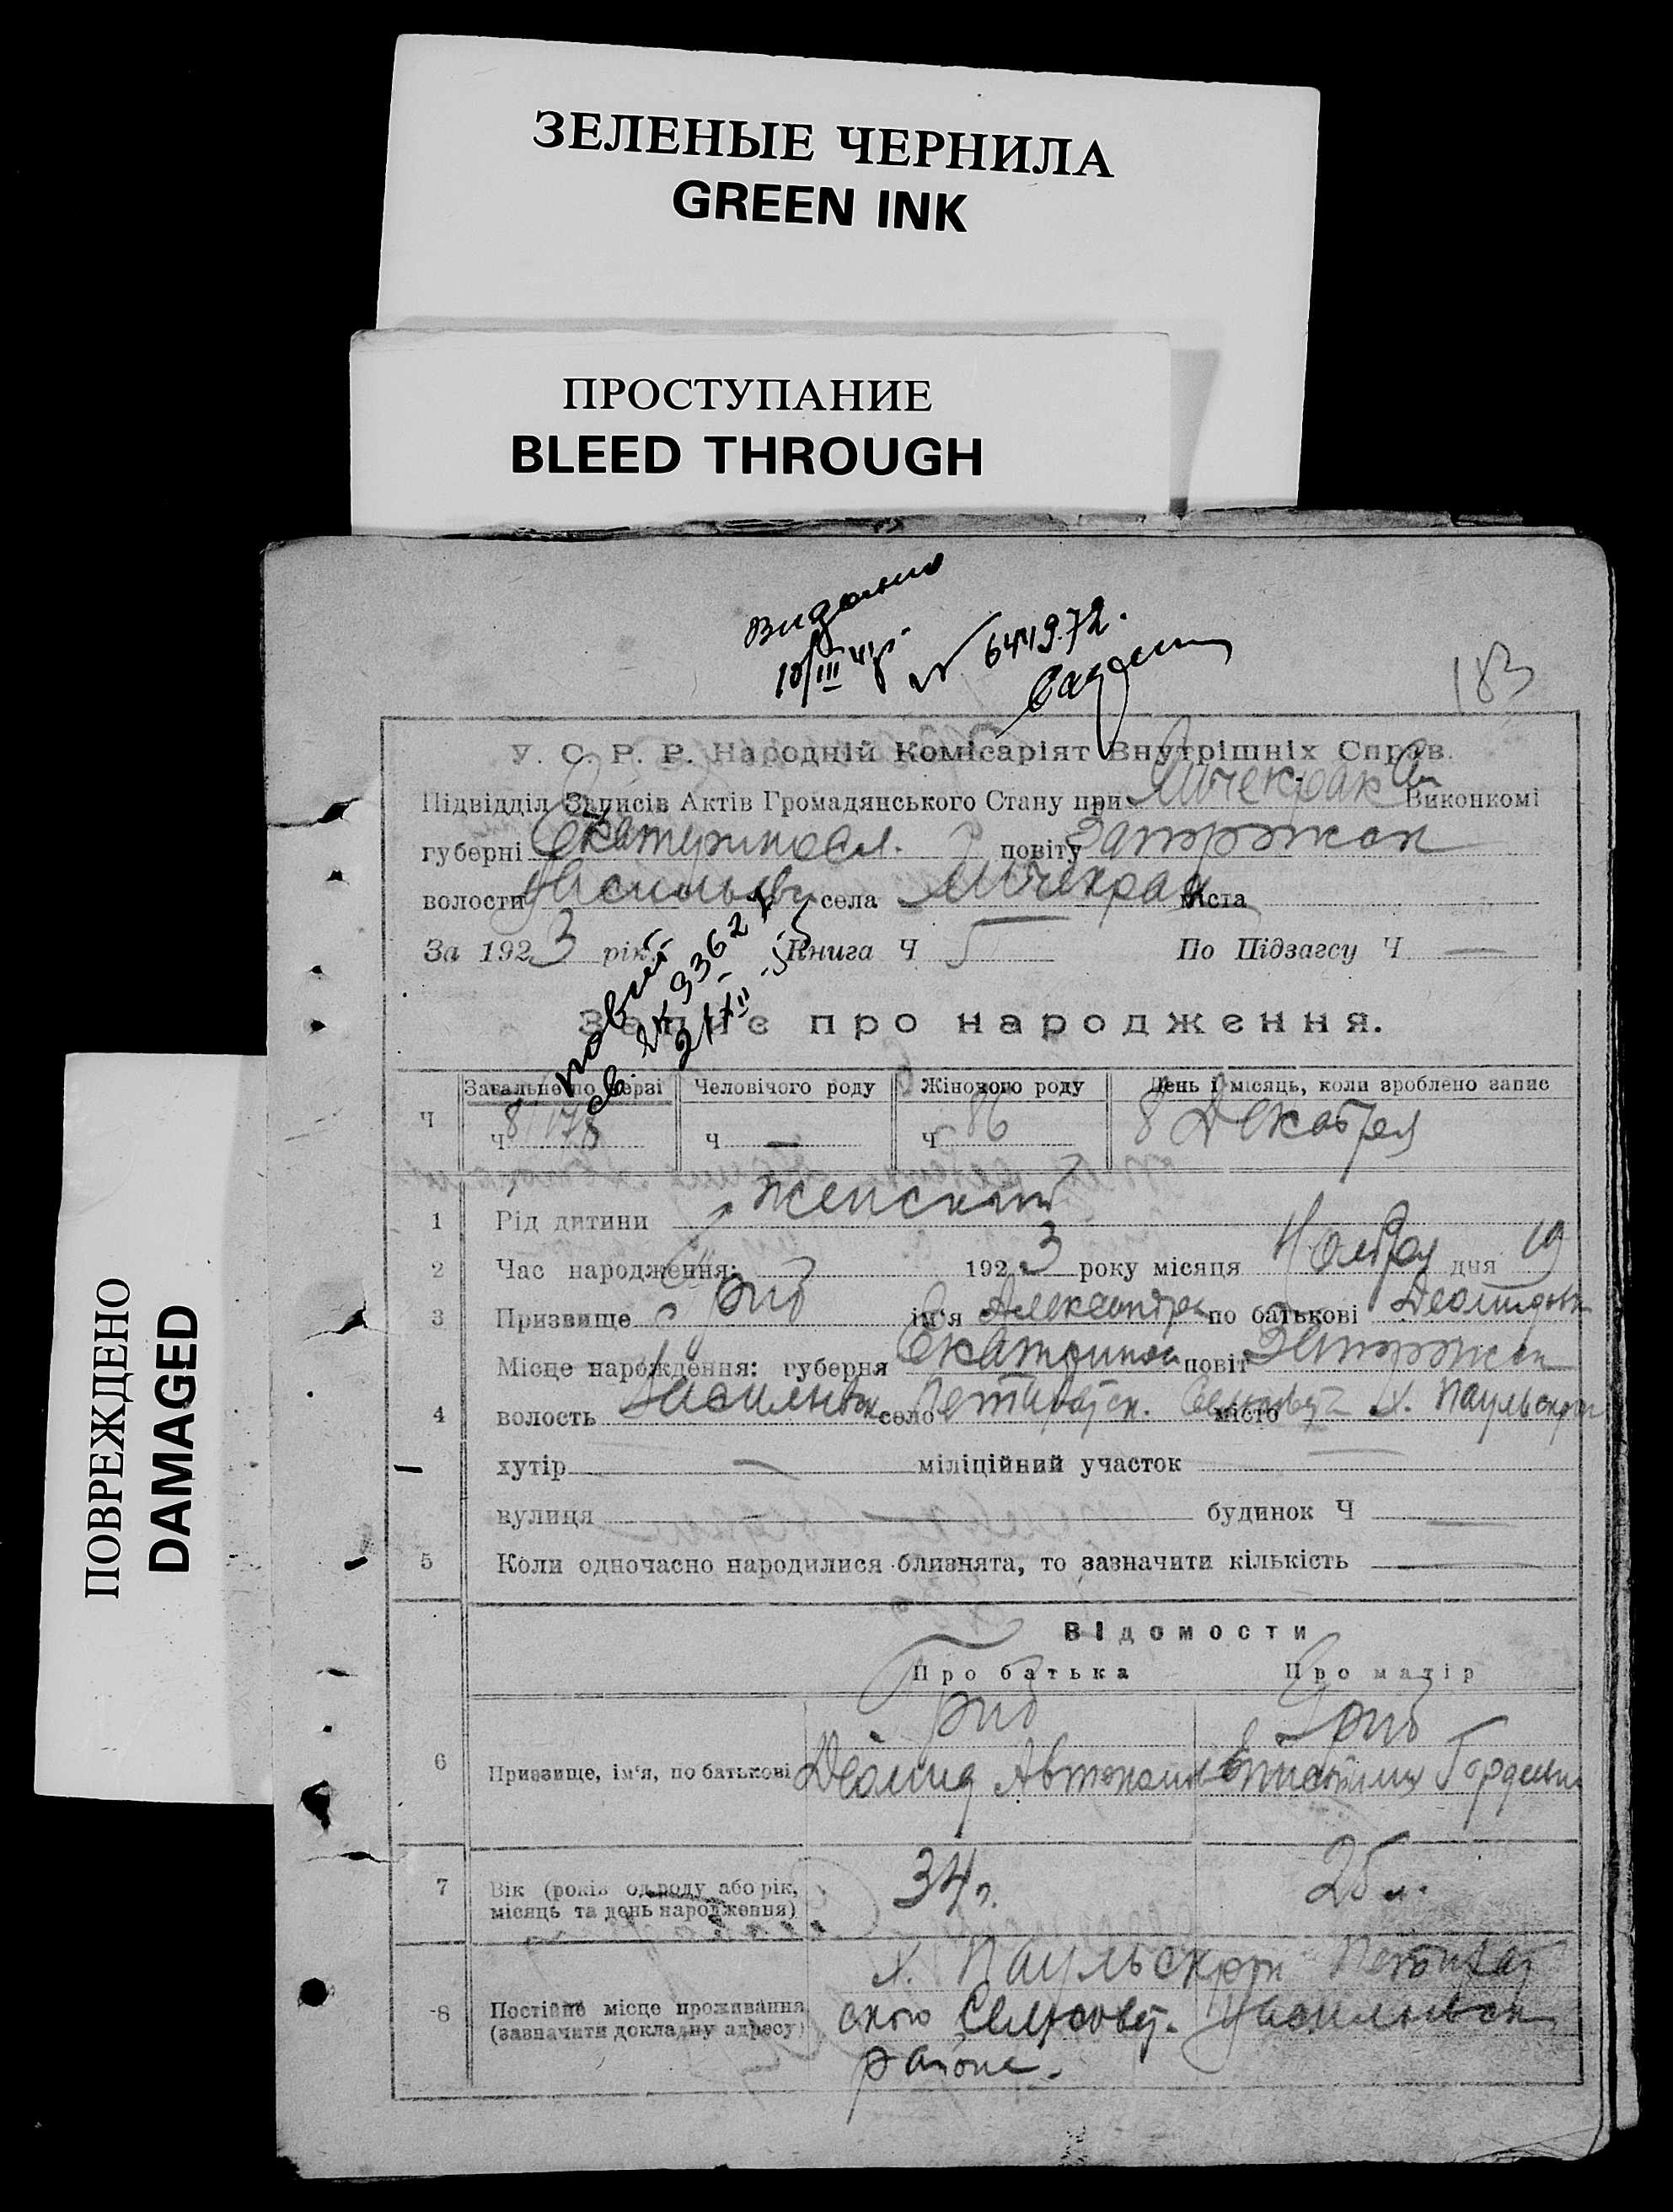 ЗЕЛЕНЫЕ ЧЕРНИЛА
GREEN INK
ПРОСТУПАНИЕ
BLEED THROUGH
ПОВРЕЖДЕНО
DAMAGED
Видано
10/III 41р. № 644972.
183
У. С. Р. Р. Народній Комісаріят Внутрішніх Справ.
Підвідділ Записів Актів Громадянського Стану при Виконкомі
губерні Екатериносл. повіту Запорожск
волости села міста
За 1923 рік. Книга Ч 5 По Підзагсу Ч —
Запис про народження.
Загальне по черзі Человічого роду Жіночого роду День і місяць, коли зроблено запис
Ч Ч 178 Ч — Ч 86 8 Декабря
1 Рід дитини женский
2 Час народження: 1923 року місяця Ноября дня 19
3 Призвище Гриб ім'я Александра по батькові Деомидовн
Місце нарождення: губерня Екатеринос повіт Запорожск
4 волость село місто х. Паульскрон
хутір — міліційний участок —
вулиця — будинок Ч —
5 Коли одночасно народилися близнята, то зазначити кількість —
Відомости
Про батька Про матір
Гриб Гриб
6 Призвище, ім'я, по батькові Деомид Автоном Гордеевн
7 Вік (років од роду або рік, місяць та день народження) 34 г. 25 л.
8 Постійне місце проживання (зазначити докладну адресу) х. Паульскрон
ского Сельсовет.
района.